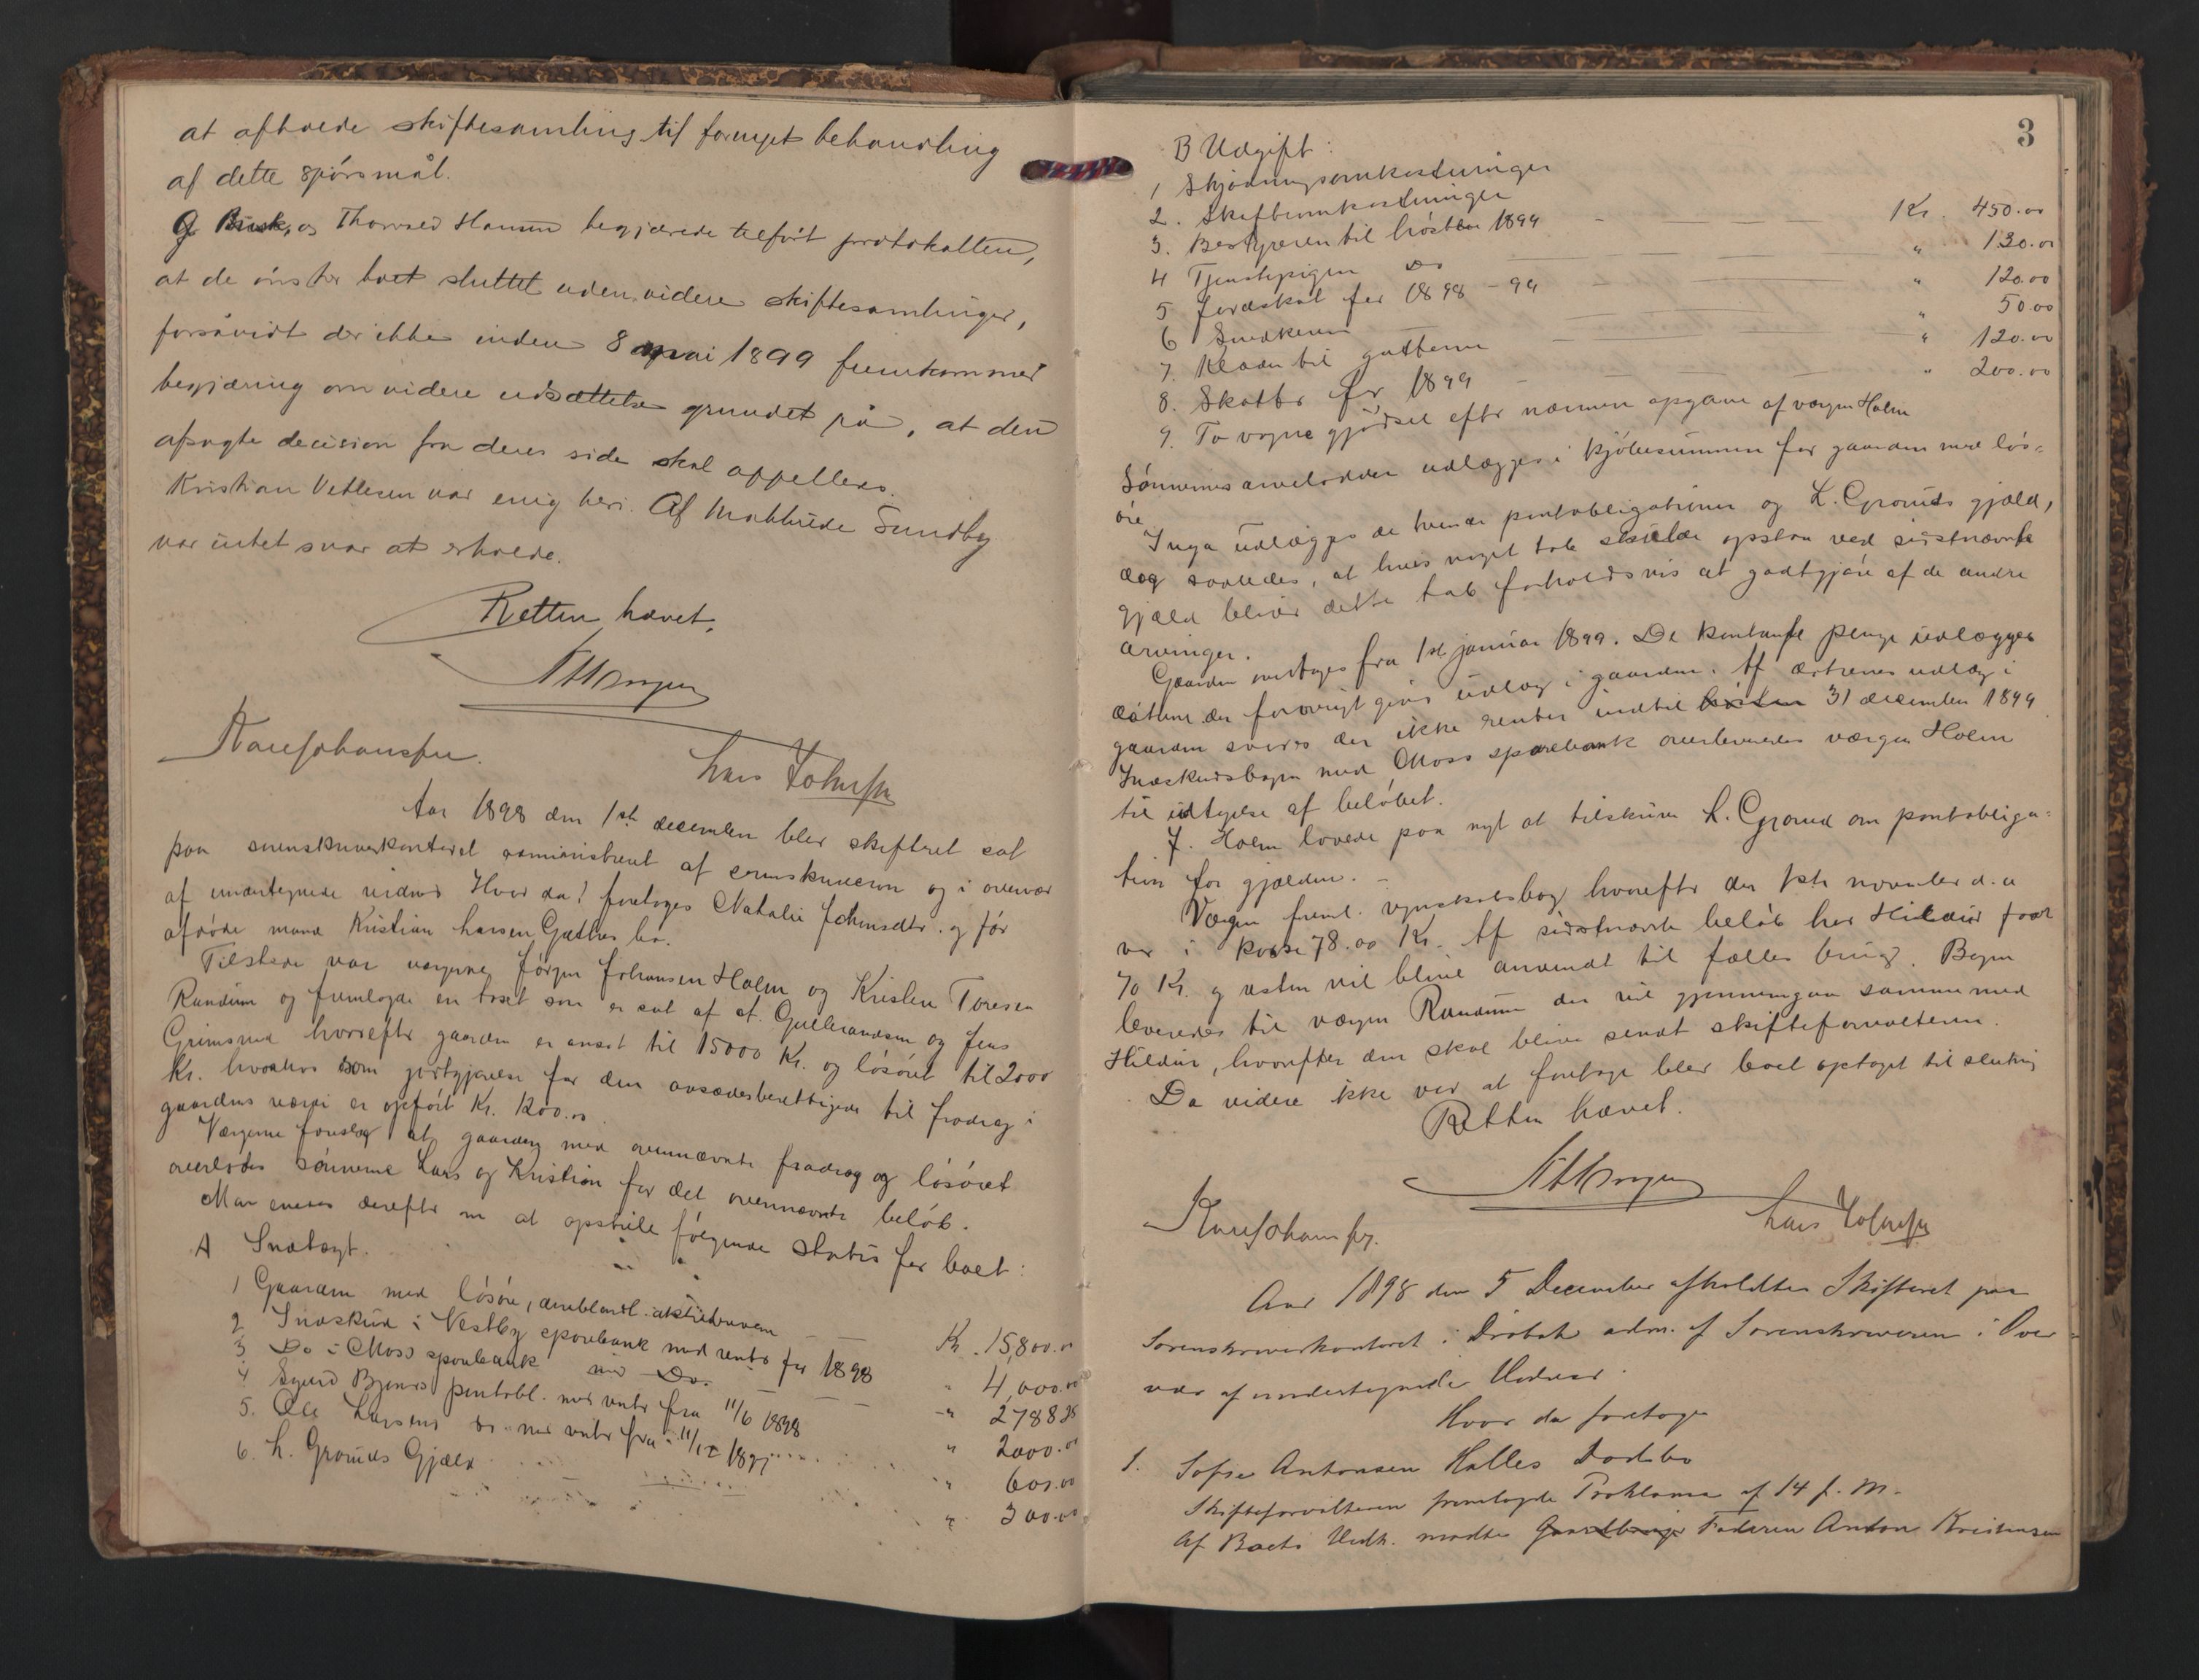 at afholde skiftesamling til fornyet behandling
af dette spórsmål.
G. Busk, og Thorvald Hansen begjærede tilfórt protokollen,
at de ónsker boet sluttet uden videre skiftesamlinger,
forsåvidt der ikke inden 8 mai 1899 fremkommer
begjæring om videre udsættelse grundet på, at den
afsagte decision fra deres side skal appelleres.
Kristian Vetlesen var enig heri. Af Mathilde Sundby
var intet svar at erholde.
Retten hævet.
Lars Johnsen
Aar 1898 den 1ste december blev skifteret sat
paa sorenskriverkontoret administreret af sorenskriveren og i overvær
af undertegnede vidner Hvor da! foretoges Natalie Johnsdtr. og før
afdóde mand Kristian Larsen Gjethus bo.
Tilstede var værgerne Jórgen Johansen Holm og Kristen Toresen
Randum og fremlagde en taxt som er sat af A. Gulbrandsen og Jens
Grimsrud hvorefter gaarden er ansat til 15000 Kr. og lósóret til 2000
Kr. hvorhos som godtgjørelse for den aasædesberettigede til fradrag i
gaardens værdi er opfórt Kr. 1200.00
Værgerne foreslog at gaarden med overnævnte fradrag og lósóret
overlodes sónnerne Lars og Kristian for det overnævnte belób.
Man enedes derefter om at opstille fólgende status for boet:
A Indtægt.
1 Gaarden med lósóre, deriblandt Kr. 15,800.00
2 Indskud i Vestby sparebank med renter for 1898 " 4,000.00
3 Do i Moss sparebank med Do. " 2788 38
4 Sigurd Bjerers pantobl. med renter fra 11/6 1898 " 2000.00
5. Ole Larsens do. med renter fra 11/12 1897 " 600.00
6. L. Grouds Gjæld " 300.00
3
B Udgift:
1 Skjódningsomkostninger
2. Skifteomkostninger Kr. 450.00
3. Bestyreren til hósten 1899 " 130.00
4 Tjenestepigen Do " 120.00
5 Jordskat for 1898 - 99 " 50.00
6 Snedkeren " 120.00
7. Klæder til gutterne " 200.00
8. Skatter for 1899
9. To vogne gjódsel efter nærmere opgave af værgen Holm
Sónnernes arvelodder udlægges i kjóbesummen for gaarden med lós-
óre
Inga udlægges de tvende pantobligationer og L. Grouds gjæld,
dog saaledes, at hvis noget tab skulde opstaa ved sidstnævnte
gjæld bliver dette tab forholdsvis at godtgjóre af de andre
arvinger.
Gaarden overtages fra 1st januar 1899. De kontante penge udlægges
dótrene der forovrigt gives udlæg i gaarden. Af dótrenes udlæg i
gaarden svares der ikke renter indtil hósten 31 december 1899
Indskudsbogen med Moss sparebank overleveredes værgen Holm
til udtagelse af belóbet.
J. Holm lovede paa nyt at tilskrive L. Groud om pantobliga-
tion for gjælden. -
Værgen freml. regnskabsbog hvorefter der 1ste november d. a
var i kasse 78.00 Kr. Af sidstnævnte belób har Hildur faaet
70 Kr. og resten vil blive anvendt til fælles brug. Bogen
leveredes til værgen Randum der vil gjennemgaa samme med
Hildur, hvorefter den skal blive sendt skifteforvalteren.
Da videre ikke var at foretage blev boet optaget til slutning
Retten hævet.
Lars Johnsen
Aar 1898 den 5 December afholdtes Skifteret paa
Sorenskriverkontoret i Dróbak adm. af Sorenskriveren i Over-
vær af undertegnede Vidner.
Hvor da foretoges
1. Sofie Antonsen Halles Dødsbo
Skifteforvalteren fremlagde Proklama af 14 f. M.
Af Boets Vedk. mødte Faderen Anton Kristensen